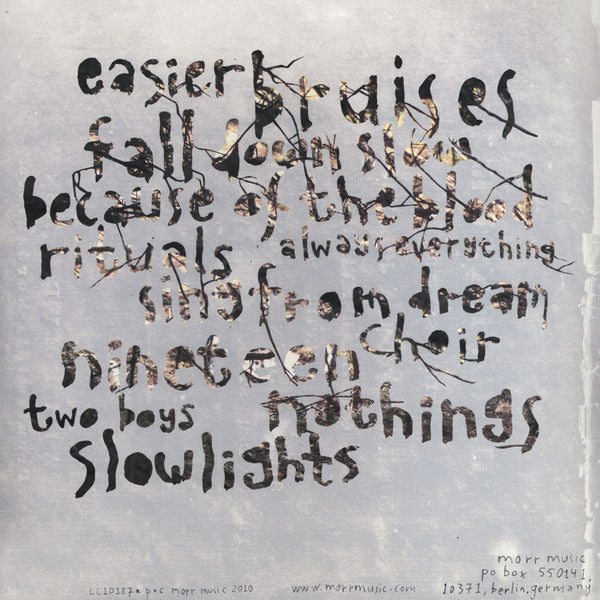 easier bruises
fall down slow
because of the blood
rituals always everything
sing from dream
nineteen choir
two boys nothings
slowlights
morr music
po box 550141,
LC10387 p+c morr music 2010 www.morrmusic.com 10371, berlin, germany